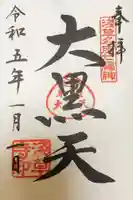 奉拝
大黒天
令和五年一月一日